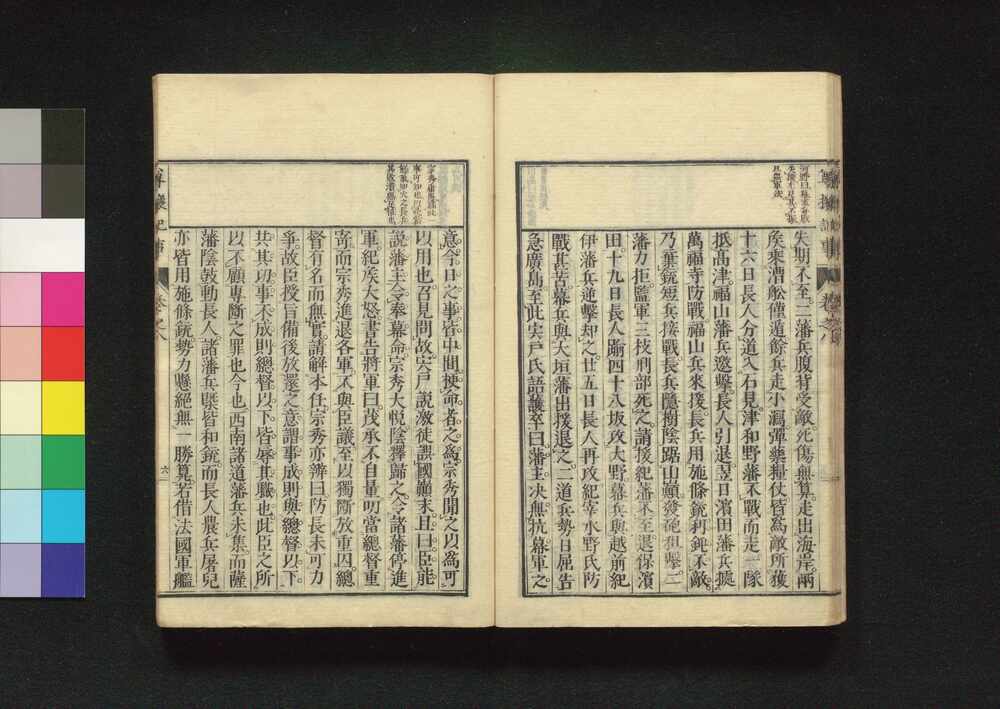 失期不至二藩兵腹背受敵死傷無算走出海岸兩
矦來漕舩僅遁餘兵走小瀉彈藥糧仗皆爲敵所獲
十六日長人分道入石見津和野藩不戰而走一隊
抵高津福山藩兵邀擊長人引退翌日濱田藩兵據
萬福寺防戰福山兵來援長兵用施條銃利鈍不敵
乃棄銃短兵接戰長兵隱樹陰踞山巔發砲狙擊二
藩力拒監軍三枝刑部死之請援紀藩不至退保濱
田十九日長人踰四十八坂攻大野幕兵與越前紀
伊藩兵逆擊却之廿五日長人再攻紀宰水野氏防
戰甚苦幕兵與大垣藩出援退之二道兵勢日屈告
急廣島至此宍戸氏語護卒曰藩主决無抗幕軍之
意今日之事皆中間梗命者之爲宗秀聞之以爲可
以用也召見問故宍戸說激徒誤國顚末且曰臣能
說藩主令奉幕命宗秀大悅陰釋歸之令諸藩停進
軍紀矦大怒書告將軍曰茂承不自量叨當總督重
寄而宗秀進退各軍不與臣議至以獨斷放重囚總
督有名而無實請解本任宗秀亦辨曰防長未可力
爭故臣授旨備後放還之意謂事成則與總督以下
共其功事未成則總督以下皆辱其職也此臣之所
以不顧專斷之罪也今也西南諸道藩兵未集而薩
藩陰鼓動長人諸藩兵槩皆和銃而長人農兵屠兒
亦皆用施條銃勢力懸絕無一勝算若借法國軍艦
六